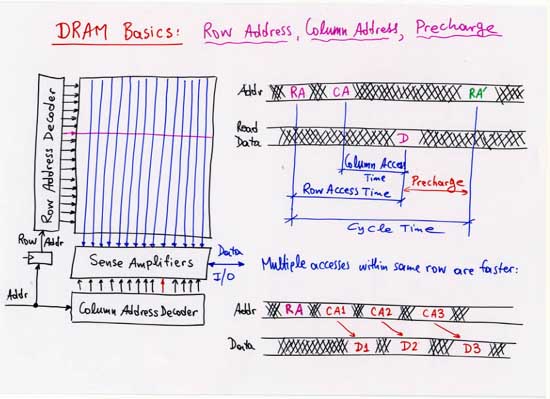 DRAM Basics: Row Address, Column Address, Precharge
Row Address Decoder
Row Addr
Addr
Sense Amplifiers
Column Address Decoder
Data
I/O
Addr RA CA RA'
Read Data D
Column Access Time
Row Access Time
Precharge
Cycle Time
Multiple accesses within same row are faster:
Addr RA CA1 CA2 CA3
Data D1 D2 D3